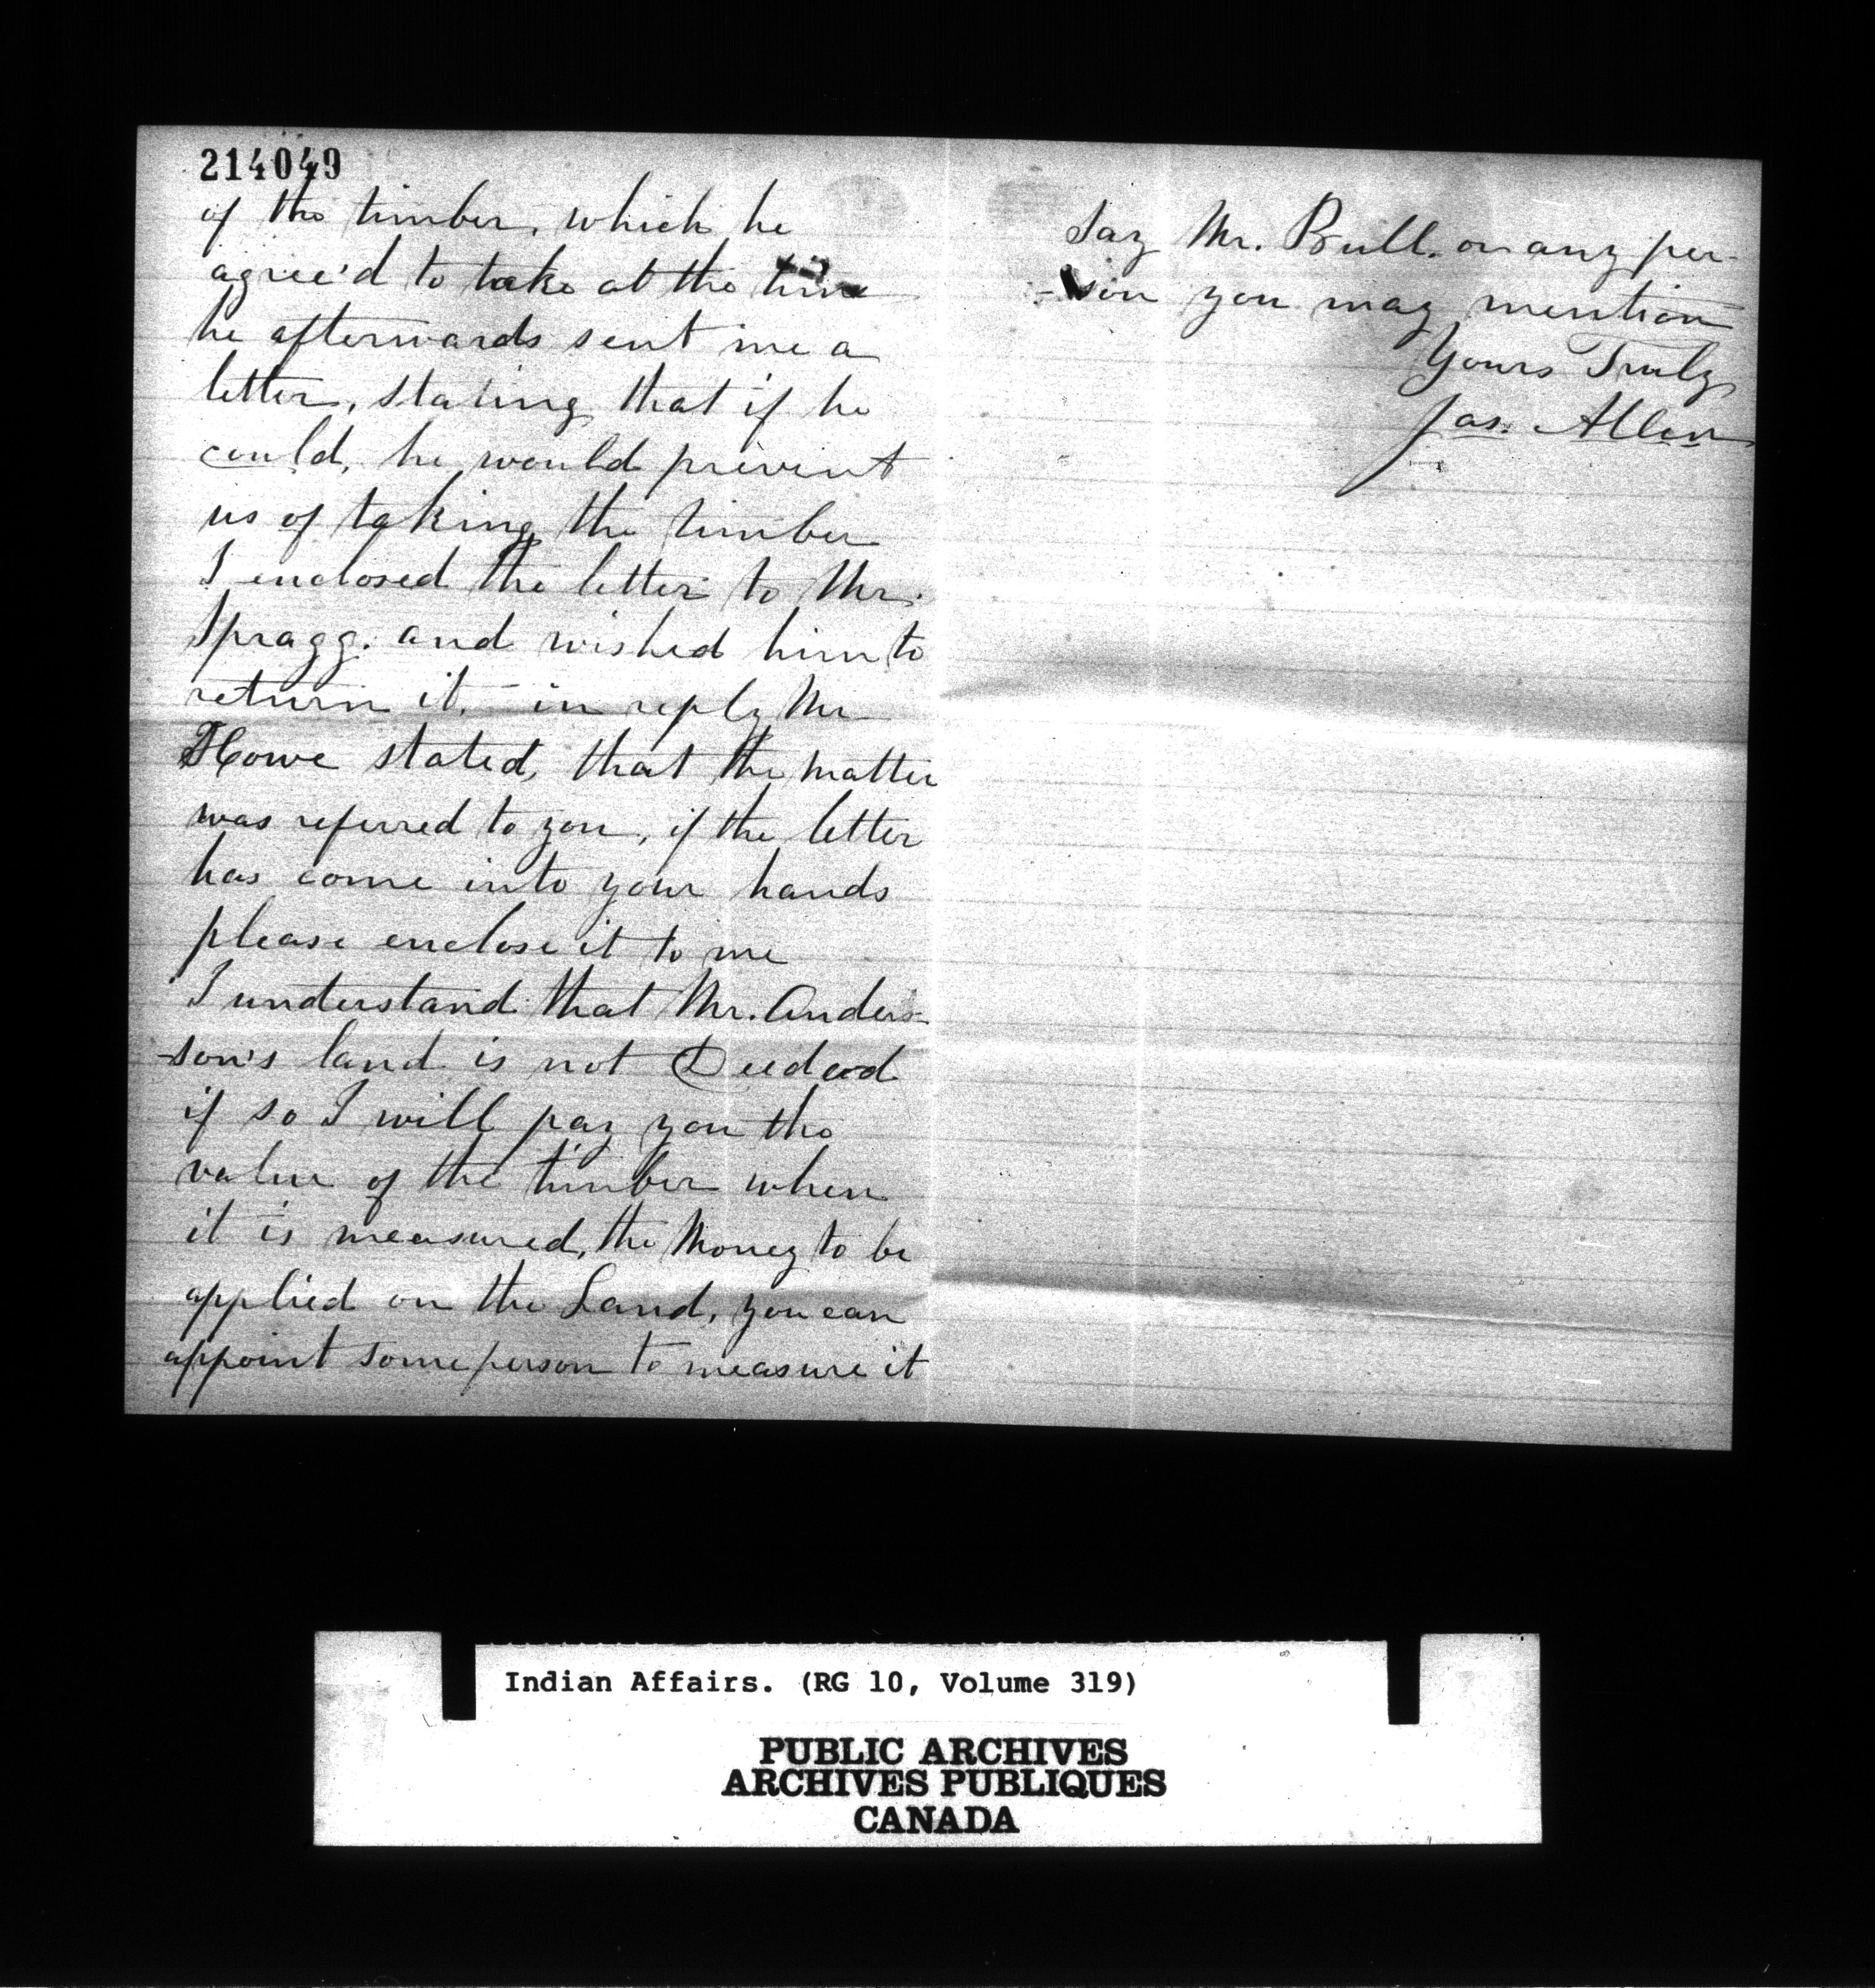 214049
of the timber, which he
agree'd to take at the time
he afterwards sent me a
letter, stating that if he
could, he would prevent
us of taking the timber
I enclosed the letter to Mr.
Spragg. and wished him to
return it, – in reply Mr
Howe stated, that the matter
was referred to you, if the letter
has come into your hands
please enclose it to me
I understand that Mr. Ander-
-son's land is not Deeded
if so I will pay you the
value of the timber when
it is measured, the Money to be
applied on the Land, you can
appoint some person to measure it
Say Mr. Bull. or any per-
-son you may mention
Yours Truly
Jas. Allen
Indian Affairs. (RG 10, Volume 319)
PUBLIC ARCHIVES
ARCHIVES PUBLIQUES
CANADA